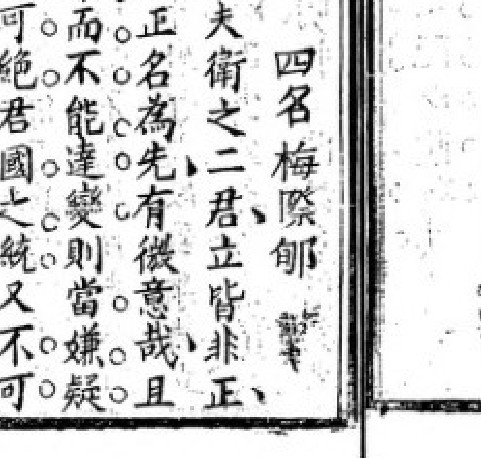 四名梅際郇
夫衛之二君立皆非正
正名為先有微意哉且
而不能達變則當嫌疑
可絕君國之統又不可